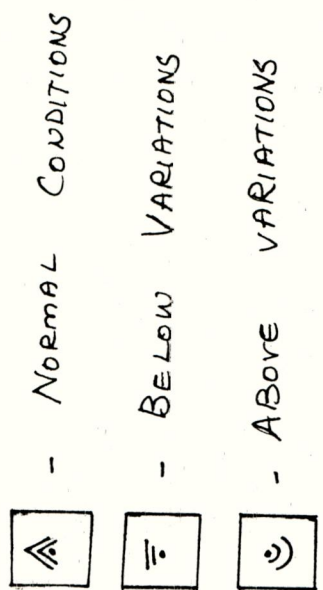 - NORMAL CONDITIONS
- BELOW VARIATIONS
- ABOVE VARIATIONS